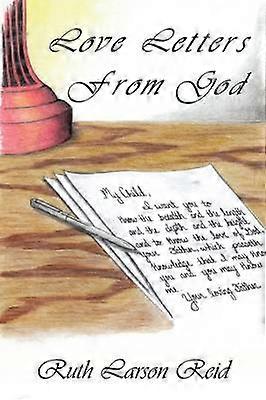 Love Letters
From God
My Child,
I want you to
know the breadth and the length
and the depth and the height
and to know the love of God
your Father which passeth
knowledge that I may know
you and you may know
me.
Your loving Father
Ruth Larson Reid